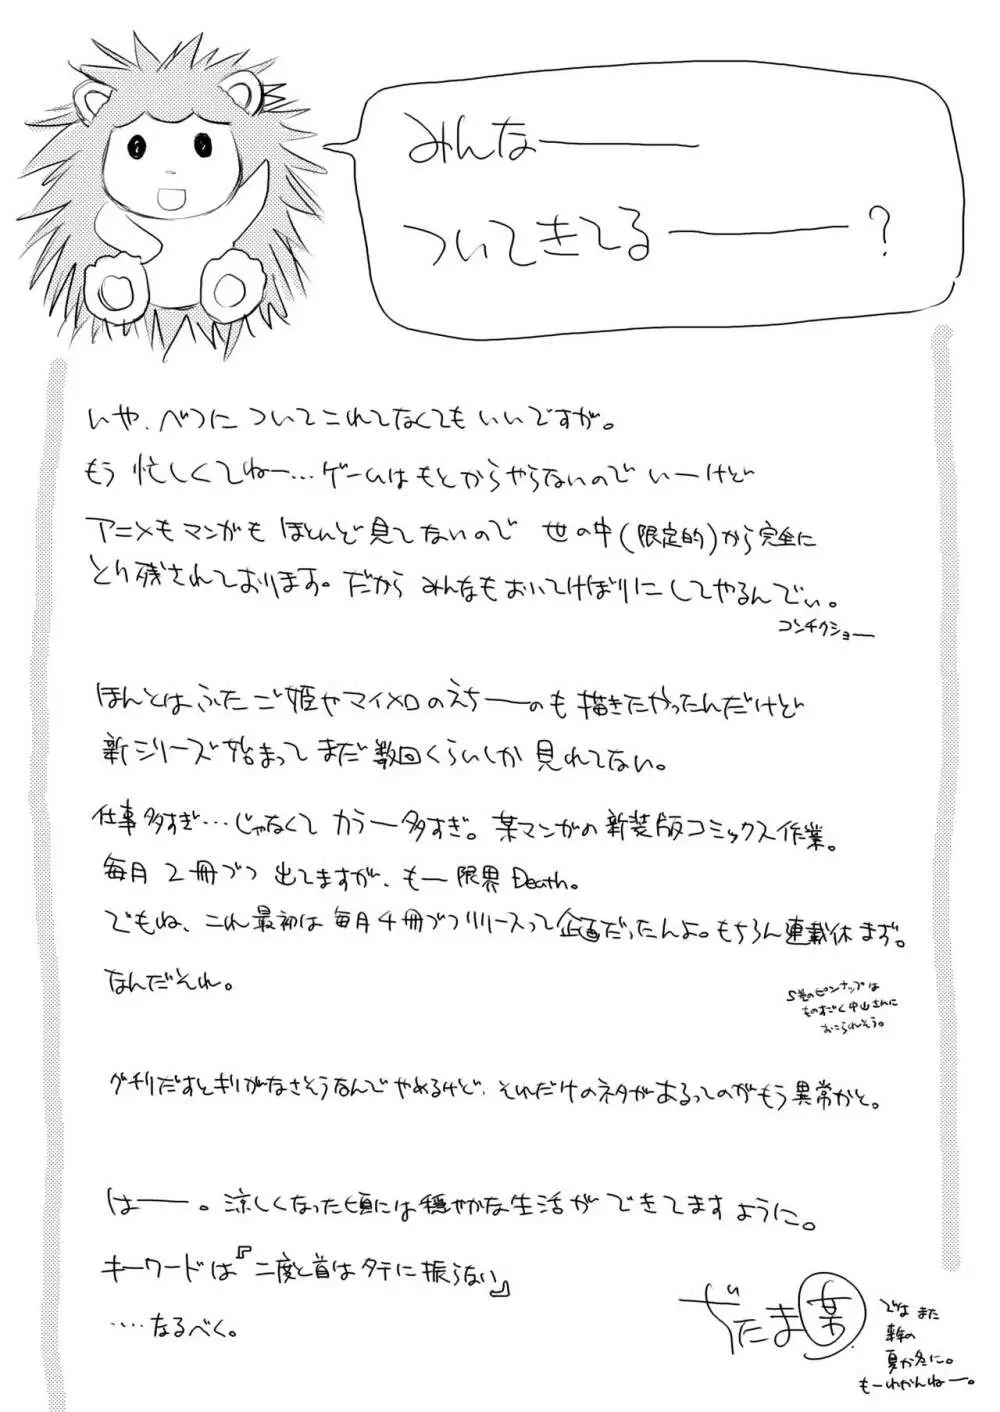 みんなーーー
ついてきてるーーー?
いや、べつについてこれてなくてもいいですが。
もう忙しくてねー…ゲームはもとからやらないのでいーけど
アニメもマンガもほとんど見てないので 世の中(限定的)から完全に
とり残されております。だからみんなもおいてけぼりにしてやるんでぃ。
コンチクショー
ほんとはふたご姫やマイメロのえちーのも描きたやったんだけど
新シリーズ始まってまだ数回くらいしか見れてない。
仕事多すぎ…じゃなくてカラー多すぎ。某マンガの新装版コミックス作業。
毎月2冊づつ出てますが、もー限界Death。
でもね、これ最初は毎月4冊づつリリースって企画だったんよ。もちろん連載休まず。
なんだそれ。
5巻のピンナップは
ものすごく中山さんに
おこられそう。
グチりだすとキリがなさそうなんでやめるけど、それだけのネタがあるってのがもう異常かと。
はーー。涼しくなった頃には穏やかな生活ができてますように。
キーワードは『二度と首はタテに振らない』
‥‥なるべく。
ぢたま某
ではまた
来年の
夏か冬に。
もーわかんねー。